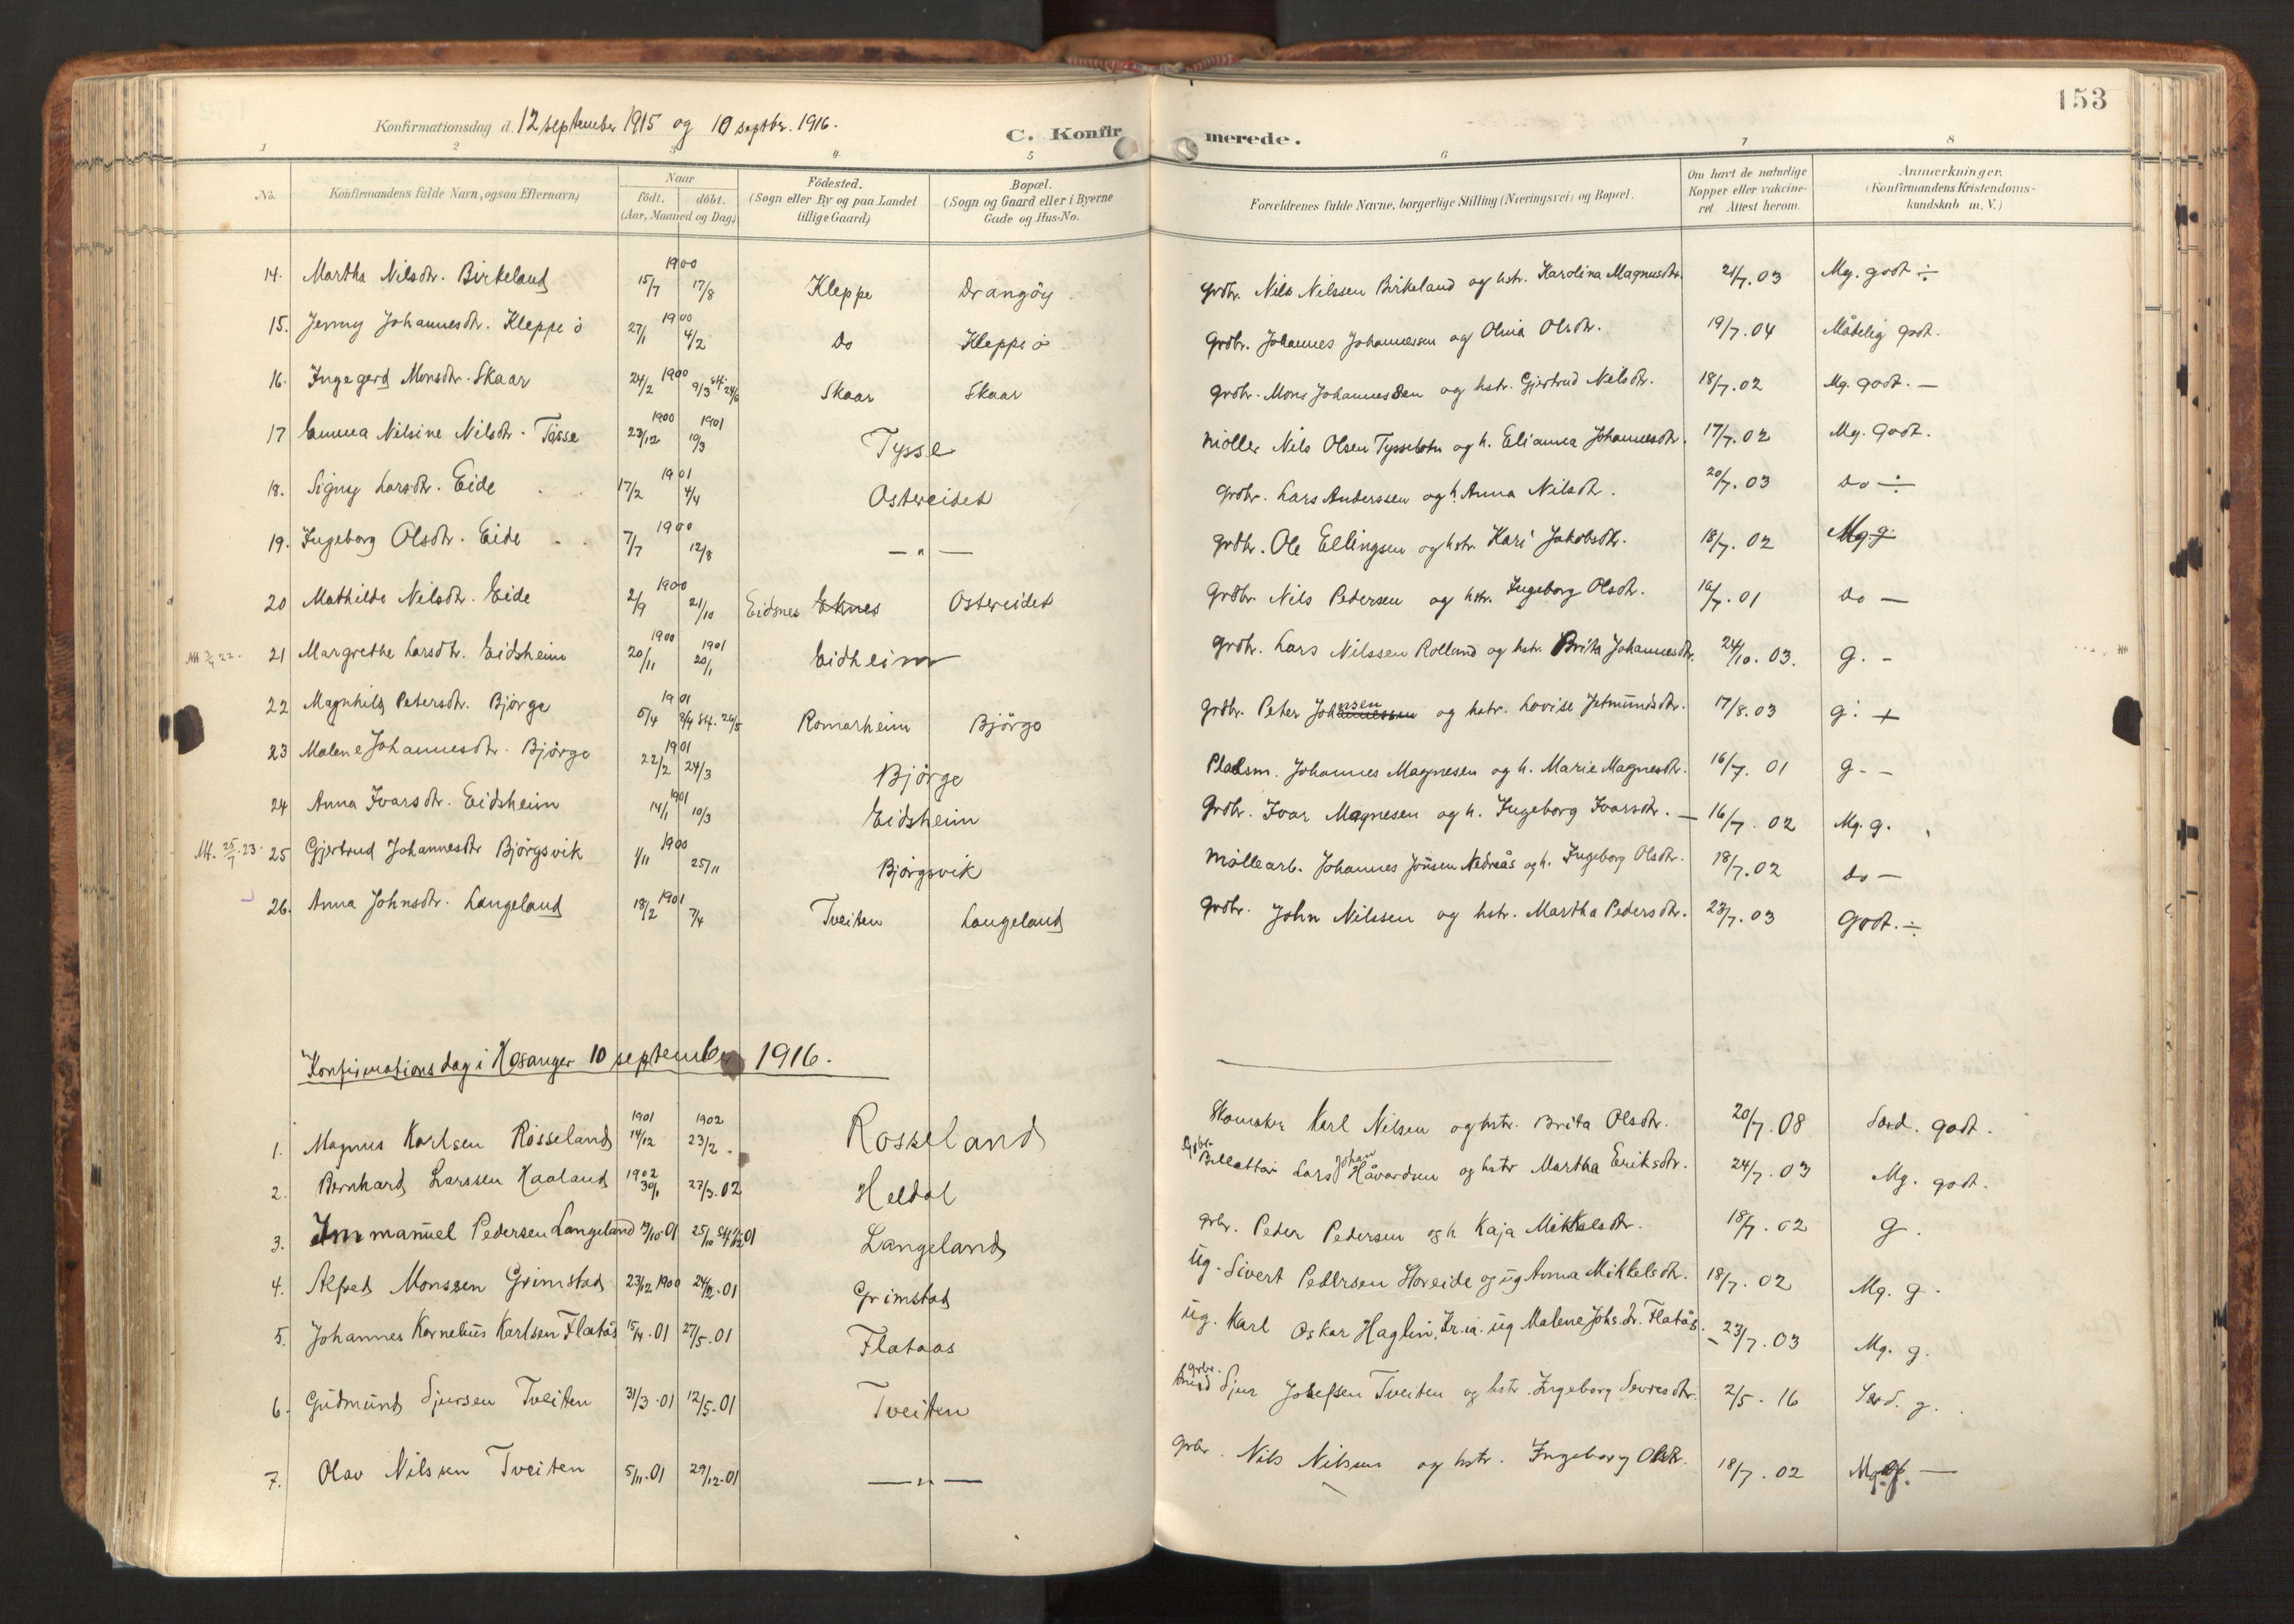 153
Konfirmationsdag d. 12 september 1915 og 10 septbr. 1916.
C. Konfirmerede.
1 2 3 4 5 6 7 8
No. Konfirmandens fulde Navn, ogsaa Efternavn) Naar født. døbt. (Aar, Maaned og Dag) Fødested. (Sogn eller By og paa Landet tillige Gaard) Bopæl. (Sogn og Gaard eller i Byerne Gade og Hus-No. Forældrenes fulde Navne, borgerlige Stilling (Næringsvei) og Bopæl. Om havt de naturlige Kopper eller vakcineret. Attest herom. Anmærkninger. (Konfirmandens Kristendomskundskab m. V.)
14. Martha Nilsdtr. Birkeland 1900 15/7 17/8 Kleppe Drangøy Grdbr. Nils Nilssen Birkeland og hstr. Karolina Magnusdtr. 21/7. 03 Mg. godt ÷
15. Jenny Johannesdtr. Kleppe ö 1900 27/1 4/2 Do Kleppe ö Grdbr. Johannes Johannessen og Olina Olsdtr. 19/7. 04 Måtelig godt.
16. Ingegerd Monsdtr. Skaar 1900 24/2 9/3 st. 24/6 Skaar Skaar Grdbr. Mons Johannessen og hstr. Gjertrud Nilsdtr. 18/7. 02 Mg. godt. —
17 Emma Nilsine Nilsdtr. Tysse 1900 23/12 1901 10/3 Tysse Møller Nils Olsen Tyssebotn og h. Elianna Johannesdtr. 17/7. 02 Mg. Godt.
18. Signy Larsdtr. Eide 1901 17/2 4/4 Ostereidet Grdbr. Lars Anderssen og h. Anna Nilsdtr. 20/7. 03 do ÷
19. Ingeborg Olsdtr. Eide 1900 7/7 12/8 — " — Grdbr. Ole Ellingsen og hstr. Kari Jakobsdtr. 18/7. 02 Mg g.
20 Mathilde Nilsdtr. Eide 1900 2/9 21/10 Eidsnes Eknes Ostereidet Grdbr. Nils Pedersen og hstr. Ingeborg Olsdtr. 16/7. 01 do —
21 Margrethe Larsdtr. Eidsheim 1900 20/11 1901 20/1 Eidheim Grdbr. Lars Nilssen Rolland og hstr. Brita Johannesdtr. 24/10. 03. g. -
22 Magnhild Petersdtr. Bjørge 1901 5/4 8/4 Stf. 26/5 Romarheim Bjørge Grdbr. Peter Johannessen nsen og hstr. Lovise Jetmundsdtr. 17/8. 03 g. +
23 Malene Johannesdtr. Bjørge 1901 22/2 24/3 Bjørge Pladsm. Johannes Magnesen og h. Marie Magnesdtr. 16/7. 01 g. -
24 Anna Ivarsdtr. Eidsheim 1901 14/1 10/3 Eidsheim Grdbr. Ivar Magnesen og h. Ingeborg Ivarsdtr. — 16/7. 02 Mg. g.
Att. 25/7. 23. 25 Gjertrud Johannesdtr Bjørgsvik 1900 1/11 25/11 Bjørgsvik Møllearb. Johannes Jonsen Nedreås og h. Ingeborg Olsdtr. 18/7. 02 do —
26. Anna Johnsdtr. Langeland 1901 18/2 7/4 Tveiten Langeland Grdbr. John Nilssen og hstr. Martha Pedersdtr. 23/7. 03 Godt. ÷
Konfirmationsdag i Hosanger 10 september 1916.
1. Magnus Karlsen Rosseland 1901 14/12 1902 23/2 Rosseland Skomaker Karl Nilsen og hstr. Brita Olsdtr. 20/7. 08 Særd. godt.
2. Bernhard Larssen Haaland 1902 30/1 27/3. 02 Heldal Lars Johan Håvardsen og hstr Martha Eriksdtr. 24/7. 03 Mg. godt.
3. Immanuel Pedersen Langeland 3/10-01 25/10 Stf. 1/12 01 Langeland Grbr. Peder Pedersen og h Kaja Mikkelsdtr. 18/7. 02 g.
4. Alfred Monssen Grimstad 23/12 1900 24/2. 01 Grimstad Ug. Sivert Pedersen Horeide og ug Anna Mikkelsdtr. 18/7. 02 Mg. g.
5. Johannes Kornelius Karlsen Flatås 15/4. 01 27/5. 01 Flataas Ug. Karl Oskar Haglin, Kr.ia. ug Malene Johs.dr. Flatås. 23/7. 03 Mg. g.
6. Gudmund Sjursen Tveiten 31/3. 01 12/5. 01 Tveiten Grbr. Sjur Josefsen Tveiten og hstr. Ingeborg Seviresdtr. 2/5. 16 Særd. g.
7. Olav Nilssen Tveiten 5/11. 01 29/12. 01 — " — Grbr. Nils Nilsen og hstr. Ingeborg Olsdtr. 18/7. 02 Mg. g. —